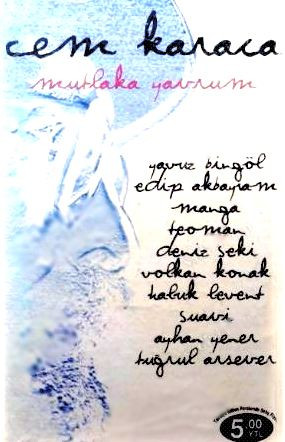 cem karaca
mutlaka yavrum
yavuz bingöl
edip akbayram
manga
teoman
deniz seki
volkan konak
haluk levent
suavi
ayhan yener
tuğrul arsever
5.00
YTL